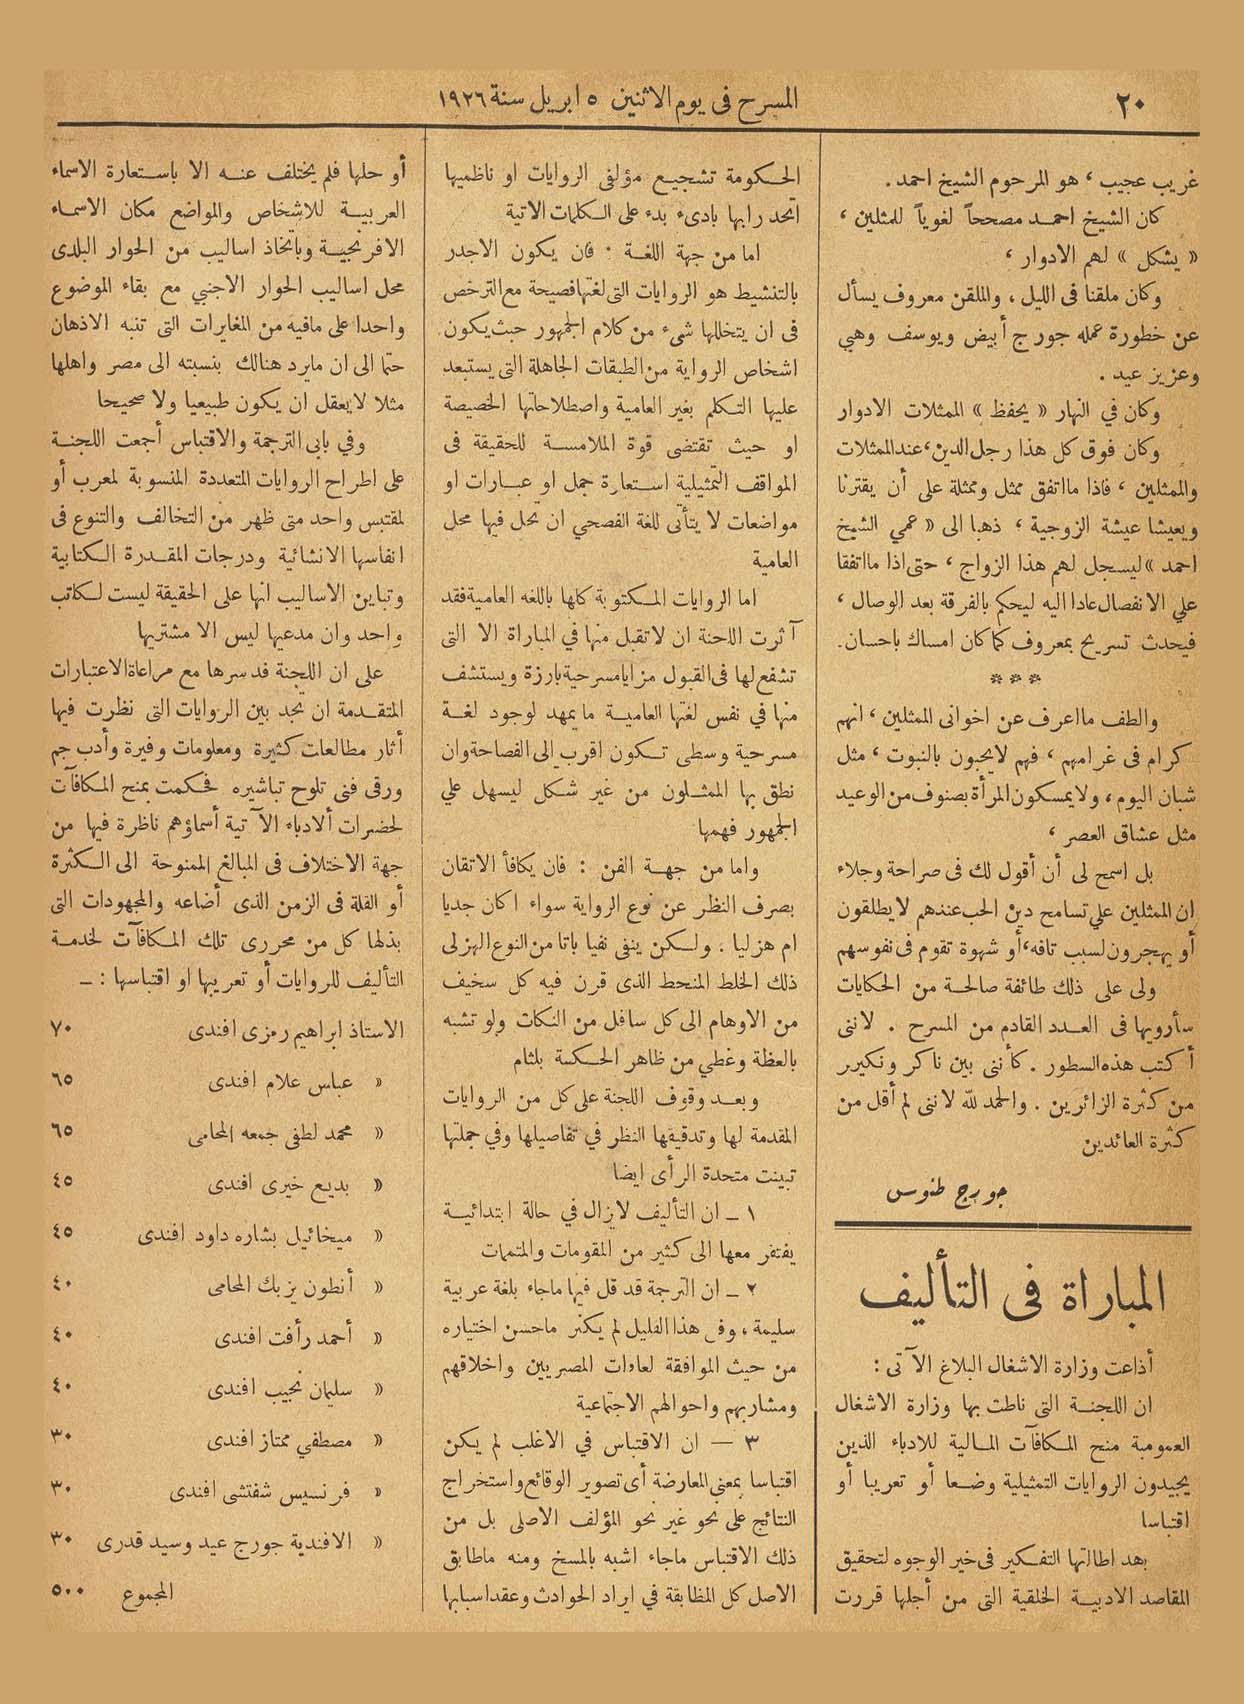 ٢٠
المسرح فى يوم الاثنين ٥ ابريل سنة ١٩٢٦
غريب عجيب ، هو المرحوم الشيخ احمد .
كان الشيخ احمد مصححاً لغوياً للمثلين ،
« يشكل » لهم الادوار ،
وكان ملقنا فى الليل ، والملقن معروف يسأل
عن خطورة عمله جورج أبيض ويوسف وهبي
وعزيز عيد .
وكان في النهار « يحفظ » الممثلات الادوار
وكان فوق كل هذا رجل الدين ، عند الممثلات
والممثلين ، فاذا ما اتفق ممثل وممثلة على أن يقترنا
ويعيشا عيشة الزوجية ، ذهبا الى « عمي الشيخ
احمد » ليسجل لهم هذا الزواج ، حتى اذا ما اتفقا
علي الانفصال عادا اليه ليحكم بالفرقة بعد الوصال ،
فيحدث تسريح بمعروف كما كان امساك باحسان .
* * *
والطف ما اعرف عن اخوانى الممثلين ، انهم
كرام فى غرامهم ، فهم لا يحبون بالنبوت ، مثل
شبان اليوم ، ولا يمسكون المرأة بصنوف من الوعيد
مثل عشاق العصر ،
بل اسمح لى أن أقول لك فى صراحة وجلاء
ان الممثلين علي تسامح دين الحب عندهم لا يطلقون
أو يهجرون لسبب تافه ، أو شهوة تقوم فى نفوسهم
ولى على ذلك طائفة صالحة من الحكايات
سأرويها فى العدد القادم من المسرح . لاننى
أكتب هذه السطور . كأننى بين ناكر ونكير
من كثرة الزائرين . والحمد لله لاننى لم أقل من
كثرة العائدين
جورج طنوس
المباراة فى التأليف
أذاعت وزارة الاشغال البلاغ الآتى :
ان اللجنة التى ناطت بها وزارة الاشغال
العمومية منح المكافآت المالية للادباء الذين
يجيدون الروايات التمثيلية وضعا أو تعريبا أو
اقتباسا
بعد اطالتها التفكير فى خير الوجوه لتحقيق
المقاصد الادبية الخلقية التى من أجلها قررت
الحكومة تشجيع مؤلفى الروايات او ناظميها
اتحد رايها بادىء بدء على الكلمات الاتية
اما من جهة اللغة : فان يكون الاجدر
بالتنشيط هو الروايات التى لغتها فصيحة مع الترخص
فى ان يتخللها شىء من كلام الجمهور حيث يكون
اشخاص الرواية من الطبقات الجاهلة التى يستبعد
عليها التكلم بغير العامية واصطلاحاتها الخصيصة
او حيث تقتضى قوة الملامسة للحقيقة فى
المواقف التمثيلية استعارة جمل او عبارات او
مواضعات لا يتأتى للغة الفصحي ان تحل فيها محل
العامية
اما الروايات المكتوبة كلها باللغه العامية فقد
آثرت اللجنة ان لا تقبل منها في المباراة الا التى
تشفع لها فى القبول مزايا مسرحية بارزة ويستشف
منها في نفس لغتها العامية ما يمهد لوجود لغة
مسرحية وسطى تكون اقرب الى الفصاحة وان
نطق بها الممثلون من غير شكل ليسهل علي
الجمهور فهمها
واما من جهة الفن : فان يكافأ الاتقان
بصرف النظر عن نوع الرواية سواء اكان جديا
ام هزليا . ولكن ينفى نفيا باتا من النوع الهزلى
ذلك الخلط المنحط الذى قرن فيه كل سخيف
من الاوهام الى كل سافل من النكات ولو تشبه
بالعظة وغطي من ظاهر الحكمة بلثام
وبعد وقوف اللجنة على كل من الروايات
المقدمة لها وتدقيقها النظر في تفاصيلها وفي جملتها
تبينت متحدة الرأى ايضا
١ ـ ان التأليف لا يزال في حالة ابتدائية
يفتقر معها الى كثير من المقومات والمتممات
٢ ـ ان الترجمة قد قل فيها ما جاء بلغة عربية
سليمة ، وفى هذا القليل لم يكثر ما حسن اختياره
من حيث الموافقة لعادات المصريين واخلاقهم
ومشاربهم واحوالهم الاجتماعية
٣ — ان الاقتباس في الاغلب لم يكن
اقتباسا بمعنى المعارضة أى تصوير الوقائع واستخراج
النتائج على نحو غير نحو المؤلف الاصلى بل من
ذلك الاقتباس ما جاء اشبه بالمسخ ومنه ما طابق
الاصل كل المطابقة في ايراد الحوادث وعقد اسبابها
أو حلها فلم يختلف عنه الا باستعارة الاسماء
العربية للاشخاص والمواضع مكان الاسماء
الافرنجية وباتخاذ اساليب من الحوار البلدى
محل اساليب الحوار الاجنبي مع بقاء الموضوع
واحدا على ما فيه من المغايرات التى تنبه الاذهان
حتما الى ان ما يرد هنالك بنسبته الى مصر واهلها
مثلا لا يعقل ان يكون طبيعيا ولا صحيحا
وفي بابى الترجمة والاقتباس أجمعت اللجنة
على اطراح الروايات المتعددة المنسوبة لمعرب أو
لمقتبس واحد متى ظهر من التخالف والتنوع فى
انفاسها الانشائية ودرجات المقدرة الكتابية
وتباين الاساليب انها على الحقيقة ليست لكاتب
واحد وان مدعيها ليس الا مشتريها
على ان اللجنة قد سرها مع مراعاة الاعتبارات
المتقدمة ان تجد بين الروايات التى نظرت فيها
أثار مطالعات كثيرة ومعلومات وفيرة وأدب جم
ورقى فنى تلوح تباشيره فحكمت بمنح المكافآت
لحضرات ألادباء الآتية أسماؤهم ناظرة فيها من
جهة الاختلاف فى المبالغ الممنوحة الى الكثرة
أو القلة فى الزمن الذى أضاعه والمجهودات التى
بذلها كل من محررى تلك المكافآت لخدمة
التأليف للروايات أو تعريبها او اقتباسها : ـ
الاستاذ ابراهيم رمزى افندى ٧٠
« عباس علام افندى ٦٥
« محمد لطفى جمعه المحامى ٦٥
« بديع خيرى افندى ٤٥
« ميخائيل بشاره داود افندى ٤٥
« أنطون يزبك المحامى ٤٠
« أحمد رأفت افندى ٤٠
« سليمان نجيب افندى ٤٠
« مصطفي ممتاز افندى ٣٠
« فرنسيس شفتشى افندى ٣٠
« الافندية جورج عيد وسيد قدرى ٣٠
المجموع ٥٠٠